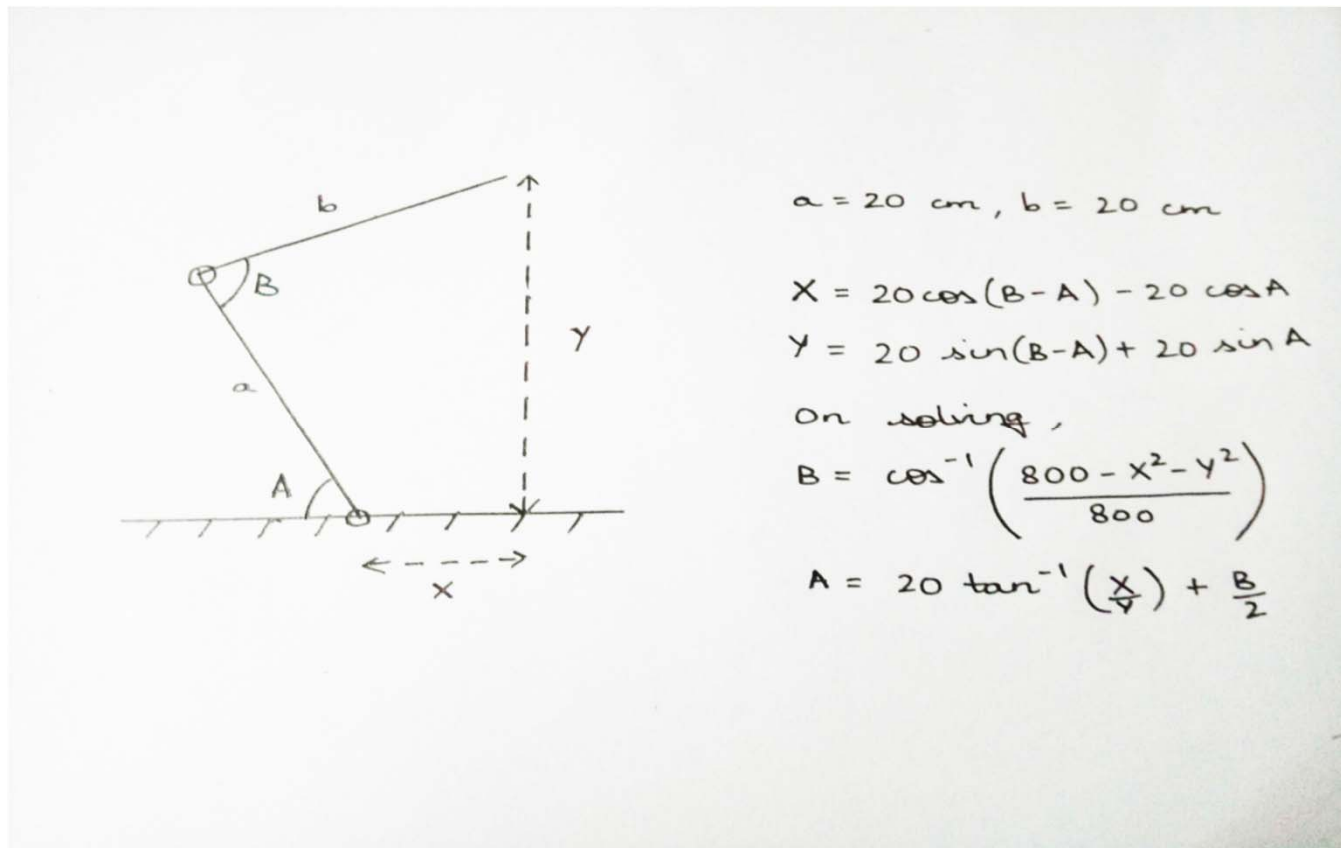 b
B
a
A
Y
X
a = 20 cm, b = 20 cm
X = 20 cos(B-A) - 20 cos A
Y = 20 sin(B-A) + 20 sin A
On solving,
B = cos⁻¹ (800 - X² - Y² / 800)
A = 20 tan⁻¹ (X/Y) + B/2